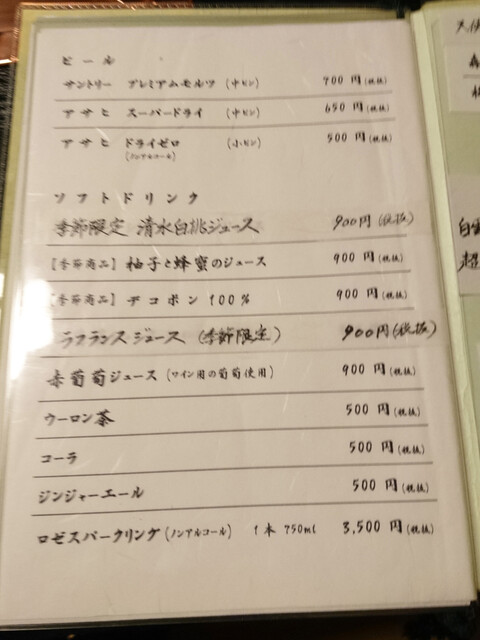 ビール
サントリー プレミアムモルツ (中ビン) 700円(税抜)
アサヒ スーパードライ (中ビン) 650円(税抜)
アサヒ ドライゼロ (小ビン) 500円(税抜)
(ノンアルコール)
ソフトドリンク
季節限定 清水白桃ジュース 900円(税抜)
【季節商品】柚子と蜂蜜のジュース 900円(税抜)
【季節商品】デコポン100% 900円(税抜)
ラフランスジュース (季節限定) 900円(税抜)
赤葡萄ジュース(ワイン用の葡萄使用) 900円(税抜)
ウーロン茶 500円(税抜)
コーラ 500円(税抜)
ジンジャーエール 500円(税抜)
ロゼスパークリング(ノンアルコール) 1本 750ml 3,500円(税抜)